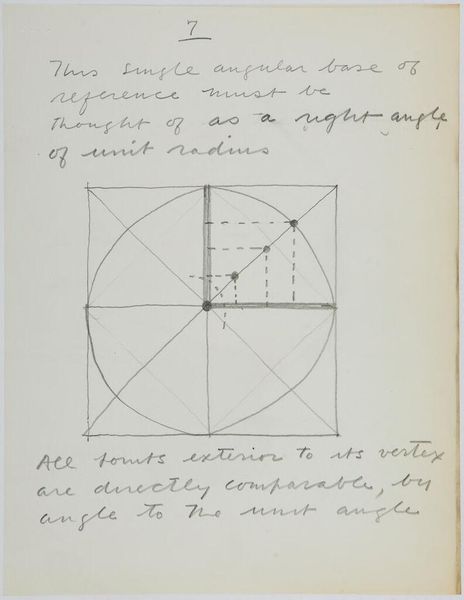 7
This single angular base of
reference must be
thought of as a right angle
of unit radius
All points exterior to its vertex
are directly comparable, by
angle to the unit angle